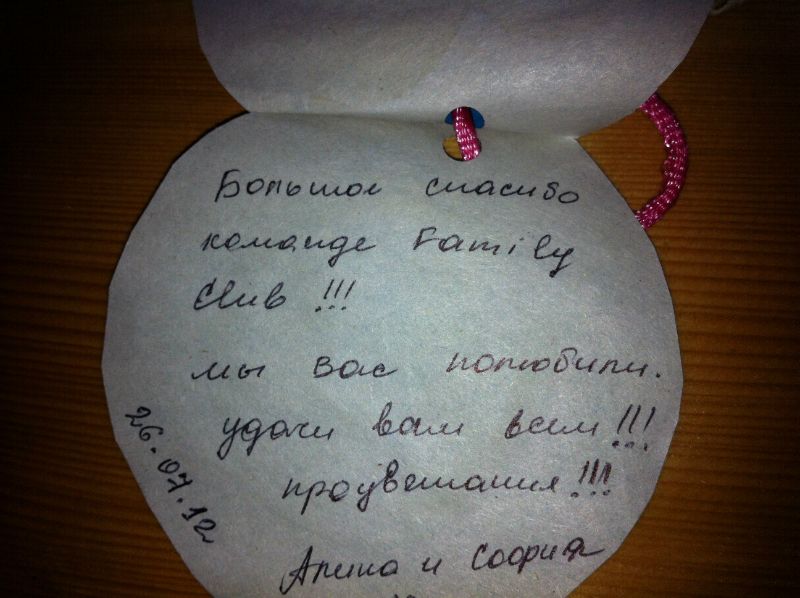 Большое спасибо
команде Family
Club !!!
мы вас полюбили.
удачи вам всем !!!
процветания !!!
26.07.12
Алина и София